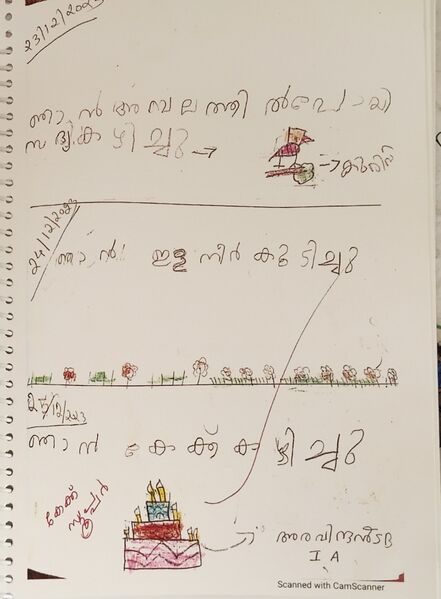 23/12/2023
ഞാൻ അമ്പലത്തിൽ പോയി
സദ്യ കഴിച്ചു
24/12/2023
ഞാൻ ഇളനീർ കുടിച്ചു
25/12/2023
ഞാൻ കേക്ക് കഴിച്ചു
കേക്ക്
സൂപ്പർ
I A
Scanned with CamScanner